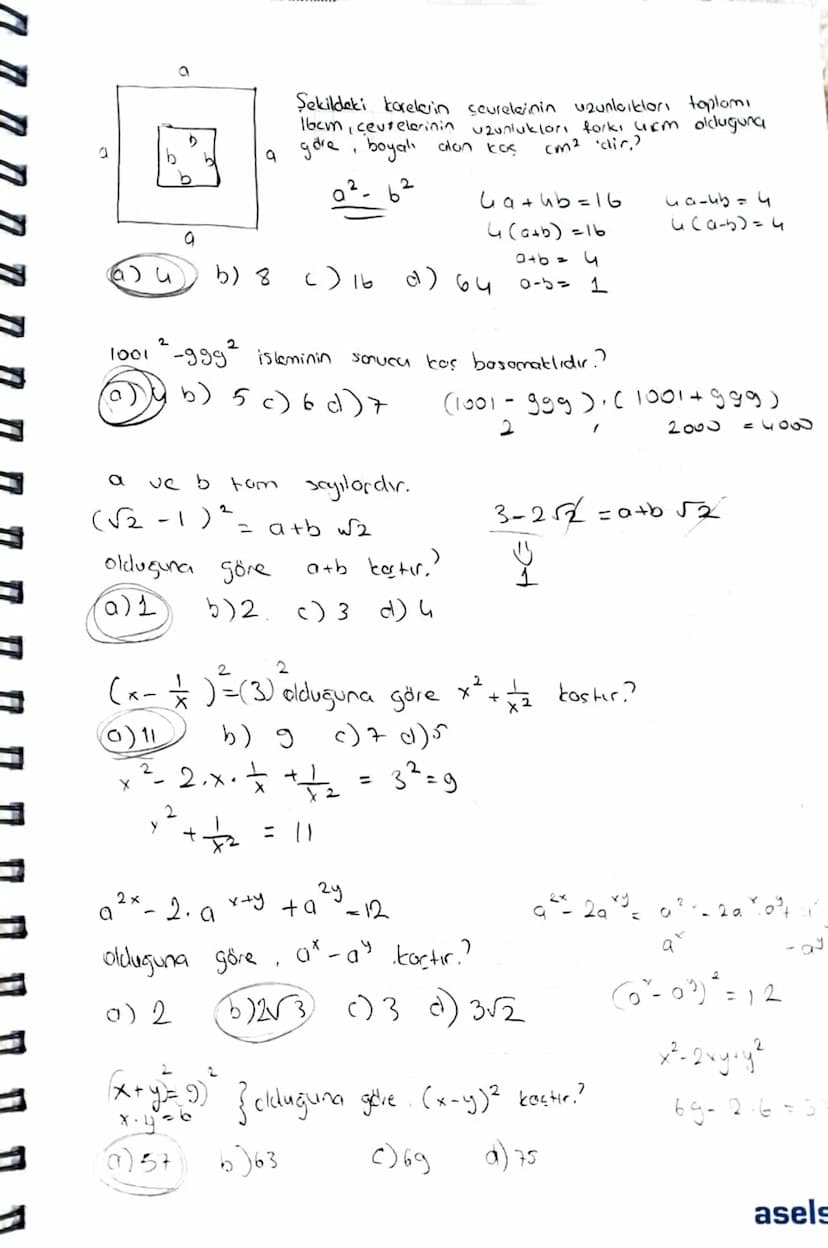 a
Şekildeki karelerin çevrelerinin uzunlukları toplamı
16cm, çevrelerinin uzunlukları farkı 4cm olduğuna
göre, boyalı alan kaç cm² 'dir?
a b b b b a
a² - b²
4a+4b=16 4a-4b=4
4(a+b)=16 4(a-b)=4
a
a+b= 4
a) 4 b) 8 c) 16 d) 64 a-b= 1
1001² -999² işleminin sonucu kaç basamaklıdır?
a) 4 b) 5 c) 6 d) 7 (1001 - 999).(1001+999)
2 , 2000 = 4000
a ve b tam sayılardır.
(√2 -1)² = a+b √2 3-2√2 = a+b √2
olduğuna göre a+b kaçtır?
1
a) 1 b) 2. c) 3 d) 4
(x- 1/x)²=(3)² olduğuna göre x² + 1/x² kaçtır?
a) 11 b) 9 c) 7 d) 5
x² - 2.x. 1/x + 1/x² = 3² = 9
x² + 1/x² = 11
a²ˣ - 2. aˣ⁺ʸ + a²ʸ = 12
olduğuna göre, aˣ - aʸ kaçtır?
aˣ - aʸ
a) 2 b) 2√3 c) 3 d) 3√2
(aˣ - aʸ)² = 12
x² - 2xy+y²
(x+y)²=9)²
x.y=6 } olduğuna göre. (x-y)² kaçtır?
69- 2.6 =
a) 57 b) 63 c) 69 d) 75
asels